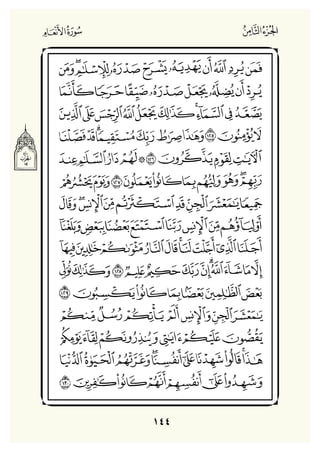 الجُزْءُ الثَّامِنُ
سُورَةُ الأَنْعَامِ
فَمَن يُرِدِ ٱللَّهُ أَن يَهۡدِيَهُۥ يَشۡرَحۡ صَدۡرَهُۥ لِلۡإِسۡلَٰمِۖ وَمَن
يُرِدۡ أَن يُضِلَّهُۥ يَجۡعَلۡ صَدۡرَهُۥ ضَيِّقًا حَرَجٗا كَأَنَّمَا
يَصَّعَّدُ فِي ٱلسَّمَآءِۚ كَذَٰلِكَ يَجۡعَلُ ٱللَّهُ ٱلرِّجۡسَ عَلَى ٱلَّذِينَ
لَا يُؤۡمِنُونَ ١٢٥ وَهَٰذَا صِرَٰطُ رَبِّكَ مُسۡتَقِيمٗاۗ قَدۡ فَصَّلۡنَا
ٱلۡأٓيَٰتِ لِقَوۡمٖ يَذَّكَّرُونَ ١٢٦ ۞ لَهُمۡ دَارُ ٱلسَّلَٰمِ عِندَ
رَبِّهِمۡۖ وَهُوَ وَلِيُّهُم بِمَا كَانُواْ يَعۡمَلُونَ ١٢٧ وَيَوۡمَ يَحۡشُرُهُمۡ
جَمِيعٗا يَٰمَعۡشَرَ ٱلۡجِنِّ قَدِ ٱسۡتَكۡثَرۡتُم مِّنَ ٱلۡإِنسِۖ وَقَالَ
أَوۡلِيَآؤُهُم مِّنَ ٱلۡإِنسِ رَبَّنَا ٱسۡتَمۡتَعَ بَعۡضُنَا بِبَعۡضٖ وَبَلَغۡنَآ
أَجَلَنَا ٱلَّذِيٓ أَجَّلۡتَ لَنَاۚ قَالَ ٱلنَّارُ مَثۡوَىٰكُمۡ خَٰلِدِينَ فِيهَآ
إِلَّا مَا شَآءَ ٱللَّهُۗ إِنَّ رَبَّكَ حَكِيمٌ عَلِيمٞ ١٢٨ وَكَذَٰلِكَ نُوَلِّي
بَعۡضَ ٱلظَّٰلِمِينَ بَعۡضَۢا بِمَا كَانُواْ يَكۡسِبُونَ ١٢٩
يَٰمَعۡشَرَ ٱلۡجِنِّ وَٱلۡإِنسِ أَلَمۡ يَأۡتِكُمۡ رُسُلٞ مِّنكُمۡ
يَقُصُّونَ عَلَيۡكُمۡ ءَايَٰتِي وَيُنذِرُونَكُمۡ لِقَآءَ يَوۡمِكُمۡ
هَٰذَاۚ قَالُواْ شَهِدۡنَا عَلَىٰٓ أَنفُسِنَاۖ وَغَرَّتۡهُمُ ٱلۡحَيَوٰةُ ٱلدُّنۡيَا
وَشَهِدُواْ عَلَىٰٓ أَنفُسِهِمۡ أَنَّهُمۡ كَانُواْ كَٰفِرِينَ ١٣٠
١٤٤